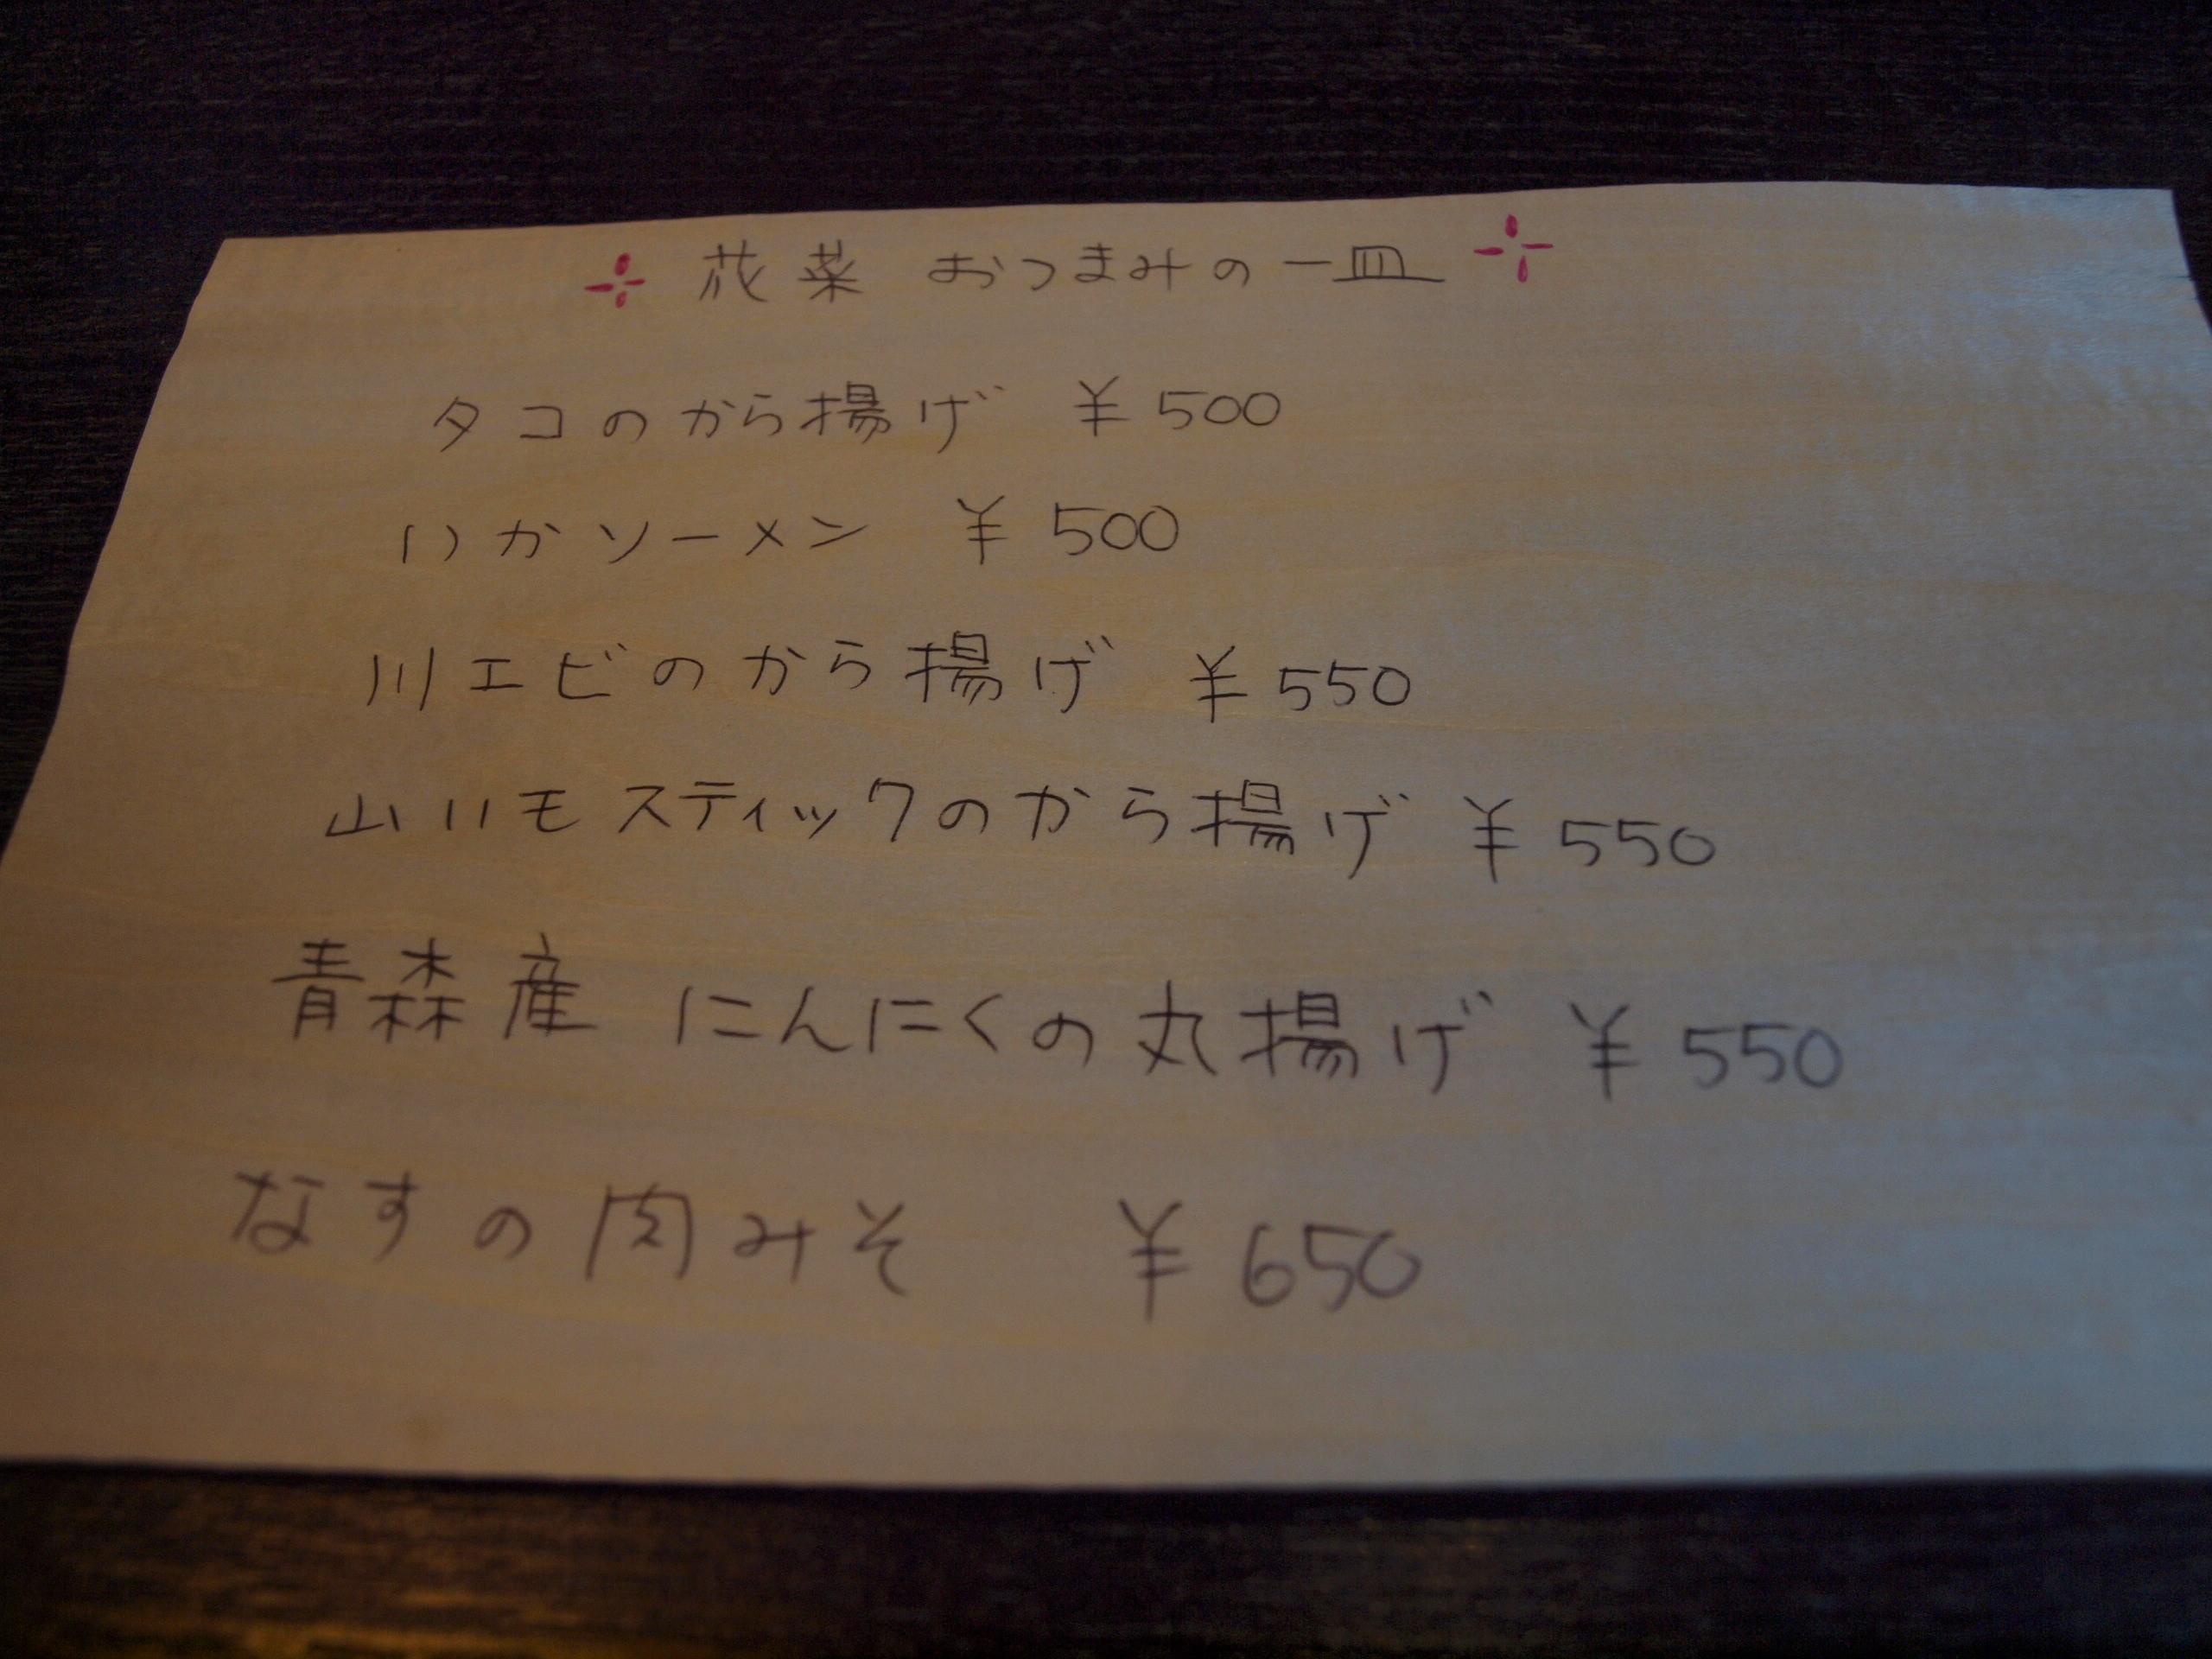 花菜 おつまみの一皿
タコのから揚げ ¥500
いかソーメン ¥500
川エビのから揚げ ¥550
山いモスティックのから揚げ ¥550
青森産 にんにくの丸揚げ ¥550
なすの肉みそ ¥650